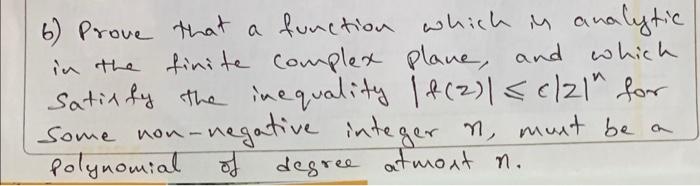 6) Prove that a function which is analytic
in the finite complex plane, and which
Satisfy the inequality |f(z)| ≤ c|z|ⁿ for
Some non-negative integer n, must be a
Polynomial of degree atmost n.